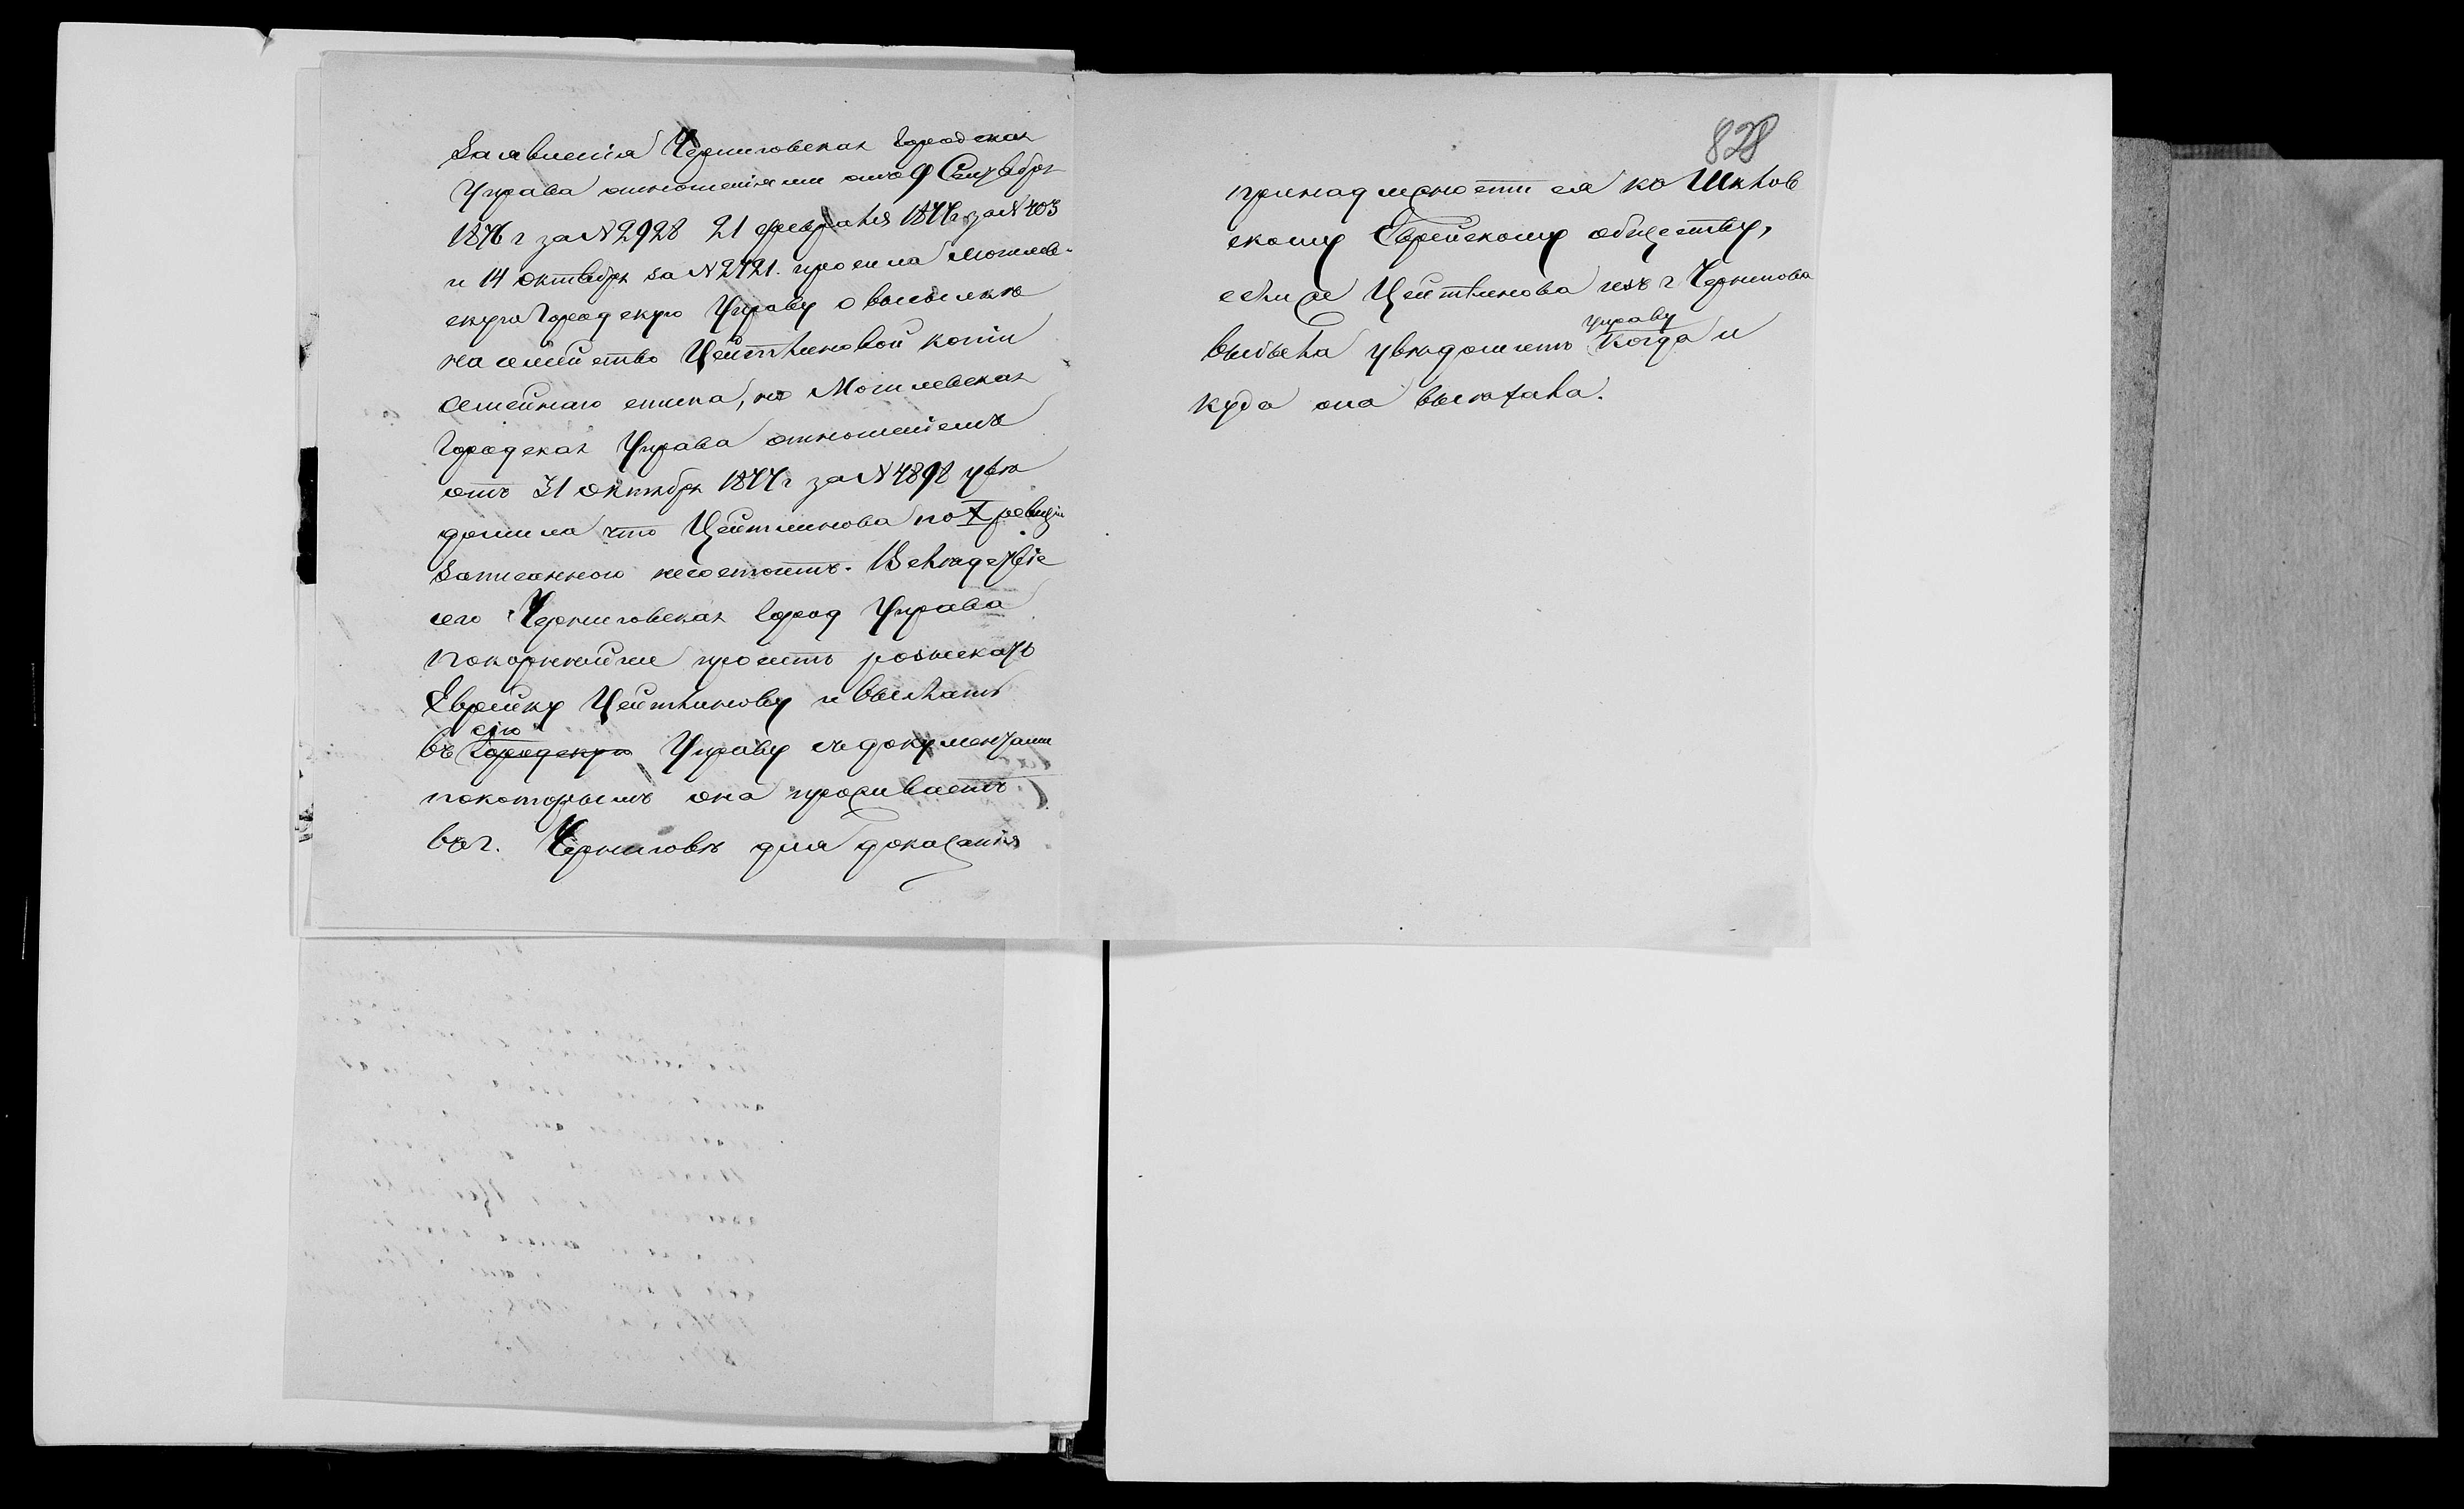 Заявленія Черниговская Городская
Управа отношеніями отъ 9 Сентября
1876 г за N 2928 21 февраля 1877 г. за N 403
и 14 октября за N 2721. просила Могилев-
скую Городскую Управу о высылкѣ
на семейство Цейтлиновой копіи
Семейнаго списка, но Могилевская
Городская Управа отношеніемъ
отъ 31 октября 1877 г за N 4898 увѣ
домила что Цейтлинова по X ревизіи
записанною несостоитъ. Вслѣдствіе
сего Черниговская Город Управа
покорнѣйше проситъ розыскать
Еврейку Цейтлинову и выслать
сію
въ Городскую Управу съ документами
покоторымъ она проживаетъ
въ г. Черниговѣ для доказанія
828
принадлежности ея къ Шклов
скому Еврейскому обществу,
если же Цейтлинова изъ г Чернигова
управу
выбыла увѣдомить когда и
куда она выѣхала.